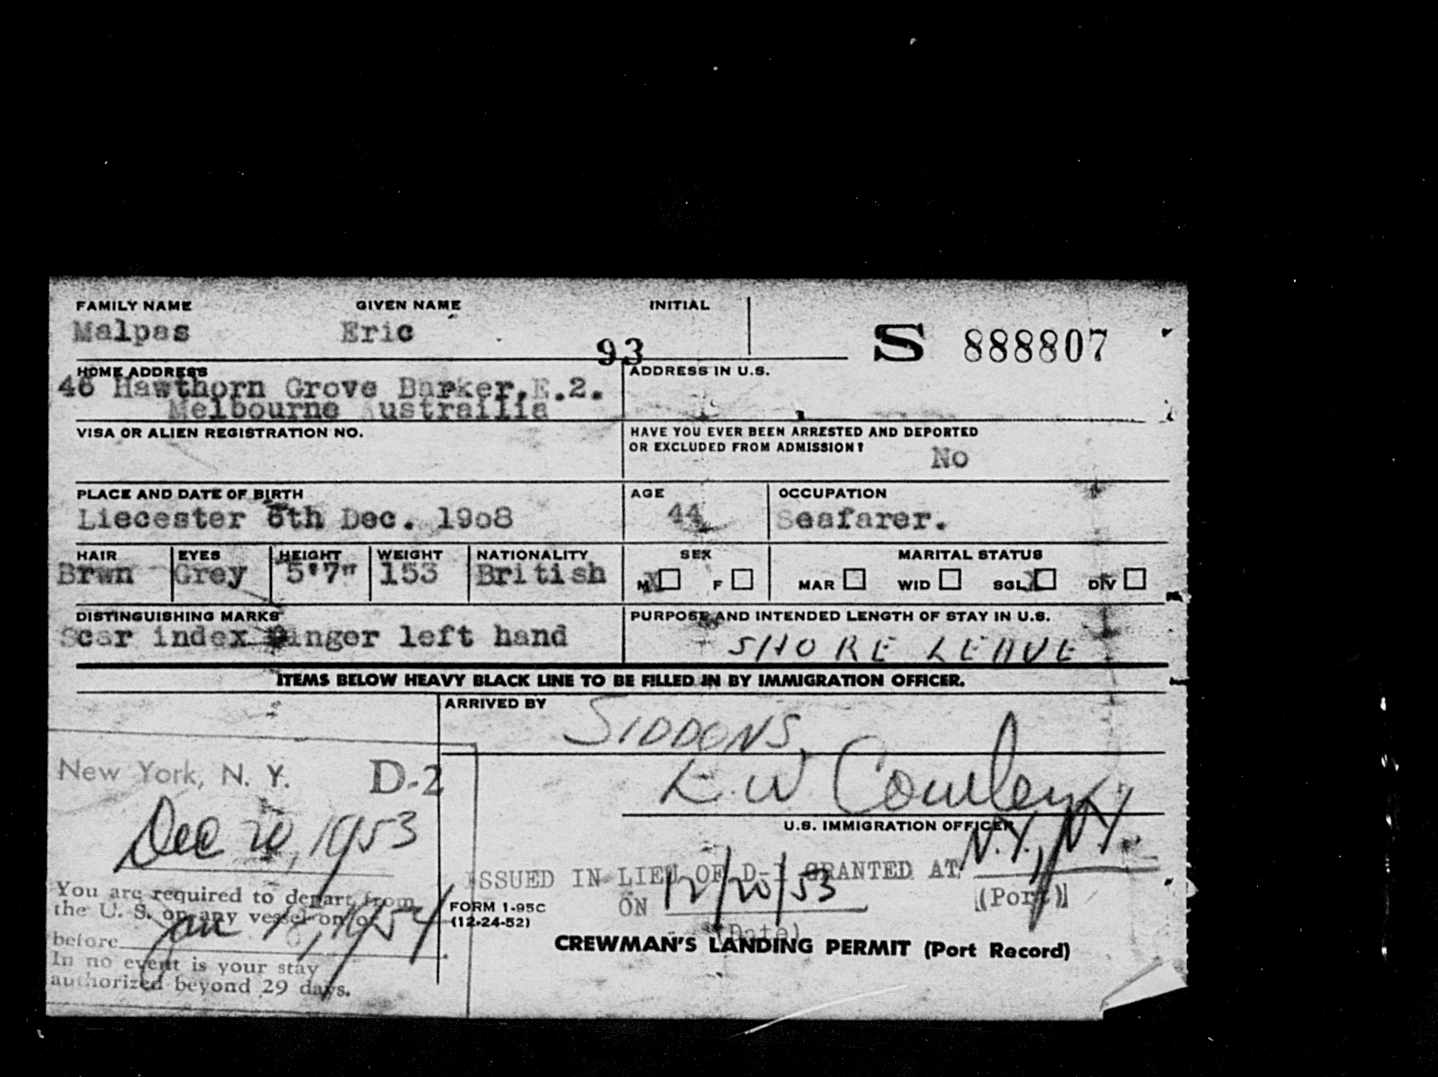 FAMILY NAME GIVEN NAME INITIAL
Malpas Eric
93
S 888807
HOME ADDRESS
46 Hawthorn Grove Barker.E.2.
Melbourne Austrailia
ADDRESS IN U.S.
VISA OR ALIEN REGISTRATION NO.
HAVE YOU EVER BEEN ARRESTED AND DEPORTED
OR EXCLUDED FROM ADMISSION?
No
PLACE AND DATE OF BIRTH AGE OCCUPATION
Liecester 6th Dec. 19o8 44 Seafarer.
HAIR EYES HEIGHT WEIGHT NATIONALITY SEX MARITAL STATUS
Brwn Grey 5'7" 153 British
M X F MAR WID SGL X DIV
DISTINGUISHING MARKS PURPOSE AND INTENDED LENGTH OF STAY IN U.S.
Scar index finger left hand SHORE LEAVE
ITEMS BELOW HEAVY BLACK LINE TO BE FILLED IN BY IMMIGRATION OFFICER.
ARRIVED BY
SIDDONS
New York, N. Y. D-2
Dec 20, 1953
You are required to depart from
the U. S. on any vessel on or
before Jan 1954
In no event is your stay
authorized beyond 29 days.
U.S. IMMIGRATION OFFICER
ISSUED IN LIEU OF D-1 GRANTED AT N.Y., N.Y.
(Port)
ON 12/20/53
(Date)
FORM I-95C
(12-24-52)
CREWMAN'S LANDING PERMIT (Port Record)